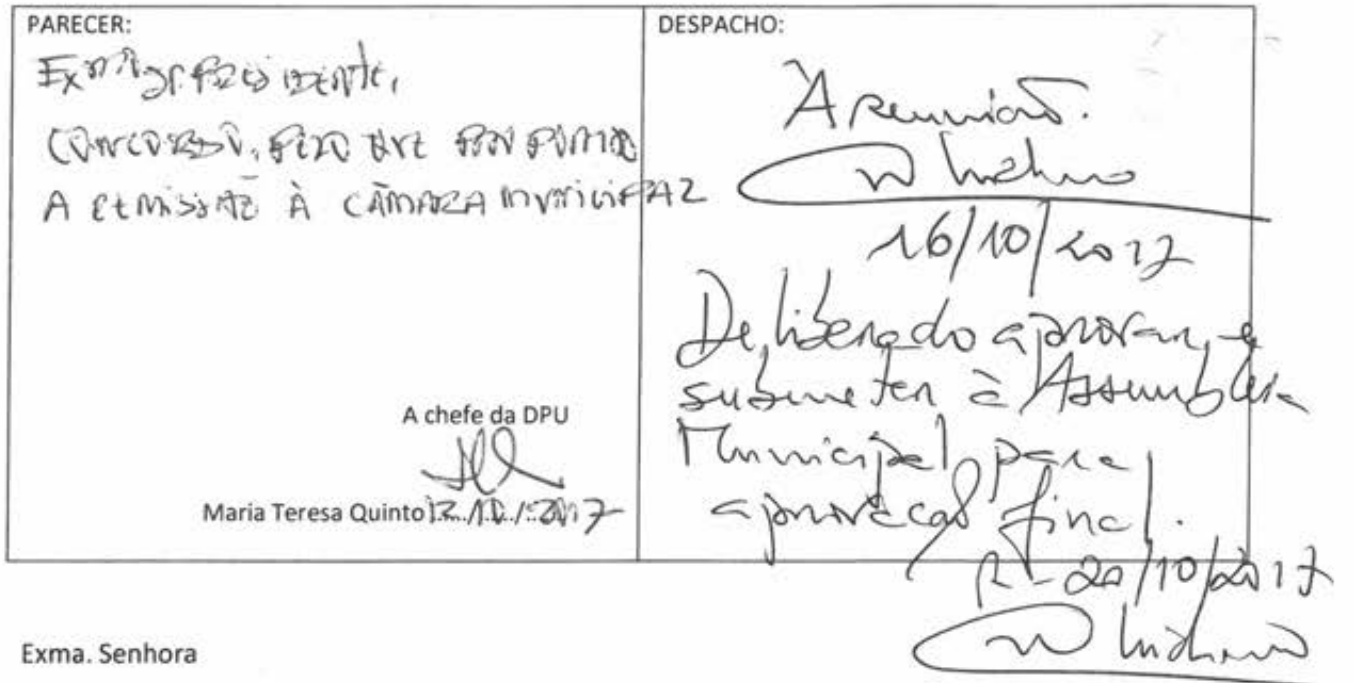 PARECER:
Exmº Sr. Presidente,
CONCORDO, PELO QUE
A REMISSÃO À CÂMARA MUNICIPAL
A chefe da DPU
Maria Teresa Quinto 12/10/2017
DESPACHO:
À Reunião.
16/10/2017
Deliberado aprovar e
submeter à Assembleia
Municipal para
aprovação final.
R - 20/10/2017
Exma. Senhora